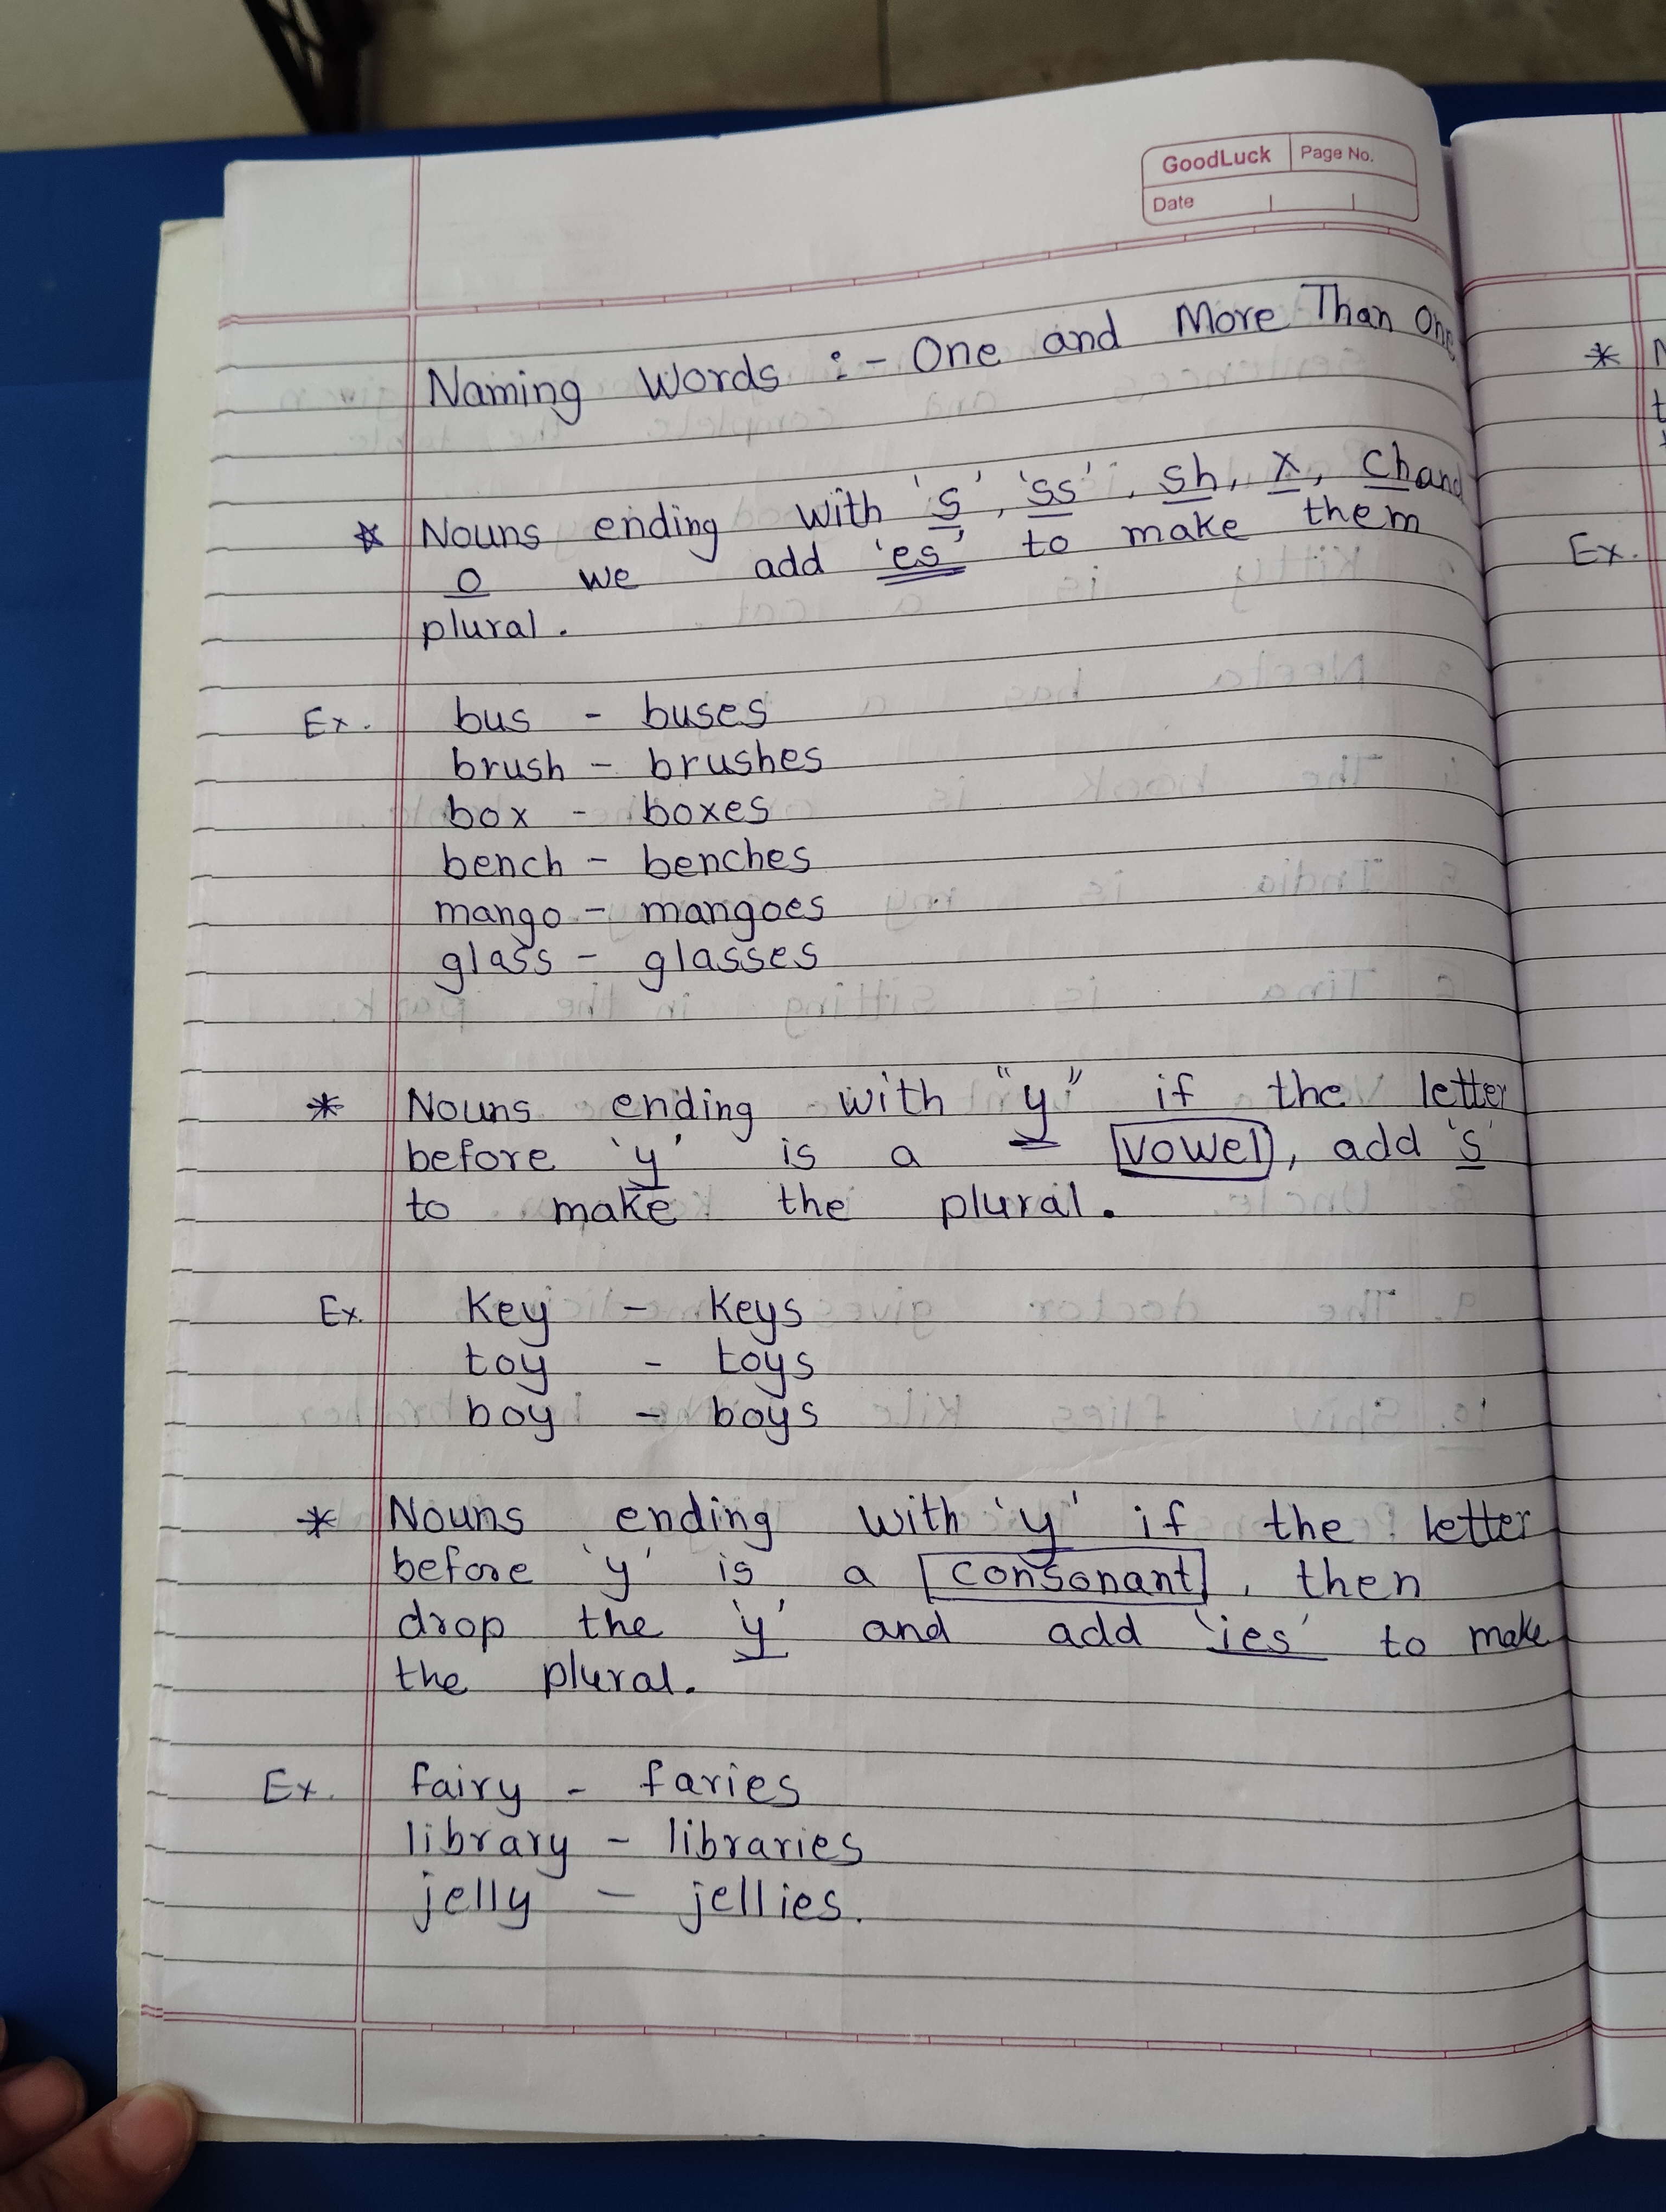 GoodLuck Page No.
Date
Naming Words :- One and More Than One
* Nouns ending with 's', 'ss', sh, x, ch and
o we add 'es' to make them
plural.
Ex. bus - buses
brush - brushes
box - boxes
bench - benches
mango - mangoes
glass - glasses
* Nouns ending with "y" if the letter
before 'y' is a vowel, add 's'
to make the plural.
Ex. key - keys
toy - toys
boy - boys
* Nouns ending with 'y' if the letter
before 'y' is a consonant, then
drop the 'y' and add 'ies' to make
the plural.
Ex. fairy - faries
library - libraries
jelly - jellies.
*
Ex.